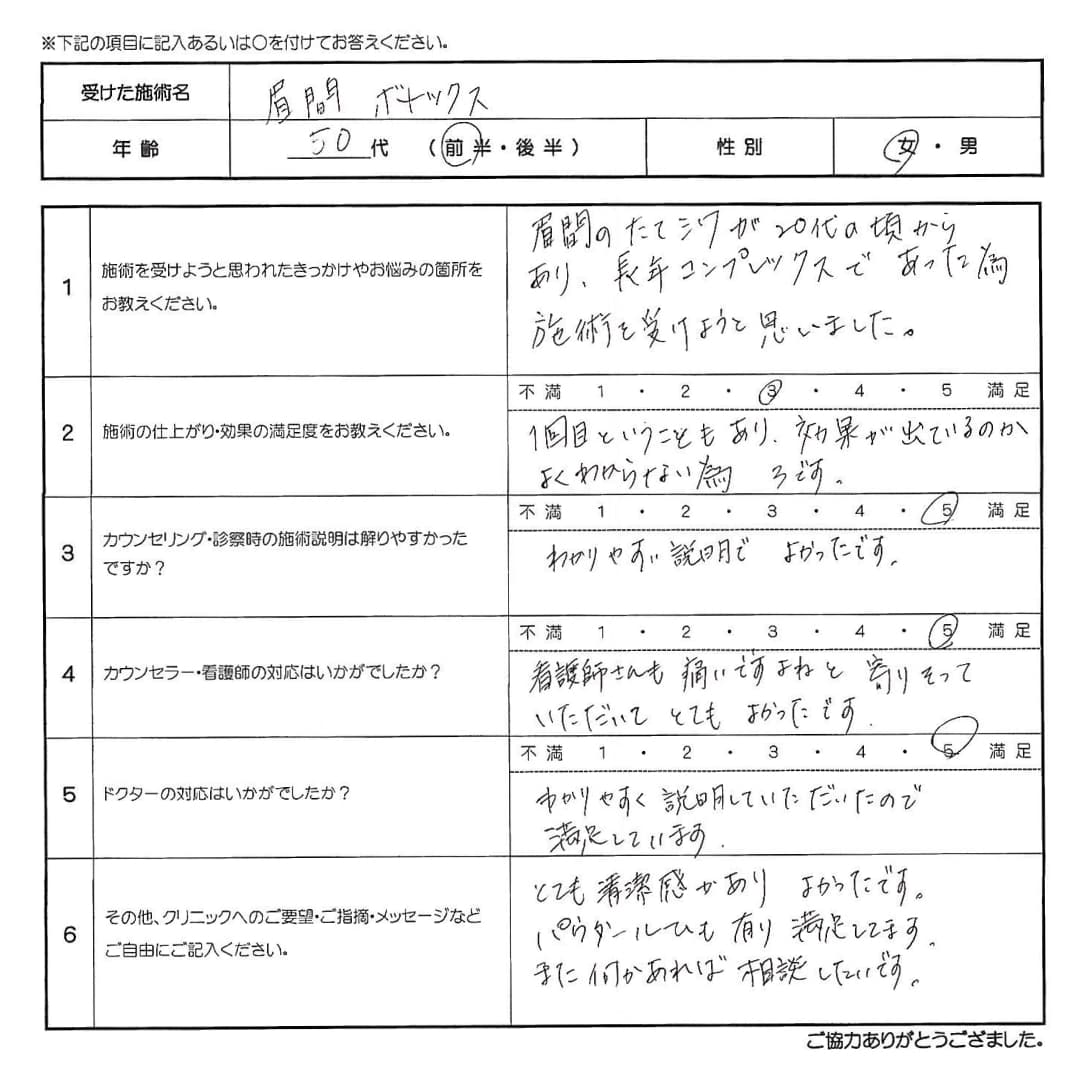 ※下記の項目に記入あるいは〇を付けてお答えください。
受けた施術名 眉間 ボトックス
年齢 50代 (前半・後半) 性別 女・男
1 施術を受けようと思われたきっかけやお悩みの箇所を
お教えください。
眉間のたてジワが20代の頃から
あり、長年コンプレックスであった為
施術を受けようと思いました。
2 施術の仕上がり・効果の満足度をお教えください。
不満 1・2・3・4・5 満足
1回目ということもあり、効果が出ているのか
よくわからない為 3です。
3 カウンセリング・診察時の施術説明は解りやすかった
ですか?
不満 1・2・3・4・5 満足
わかりやすい説明で よかったです。
4 カウンセラー・看護師の対応はいかがでしたか?
不満 1・2・3・4・5 満足
看護師さんも 痛いですよねと 寄りそって
いただいて とても よかったです.
5 ドクターの対応はいかがでしたか?
不満 1・2・3・4・5 満足
わかりやすく 説明していただいたので
満足しています.
6 その他、クリニックへのご要望・ご指摘・メッセージなど
ご自由にご記入ください。
とても 清潔感があり よかったです。
パウダールームも 有り 満足してます.
また 何かあれば 相談したいです。
ご協力ありがとうござました。